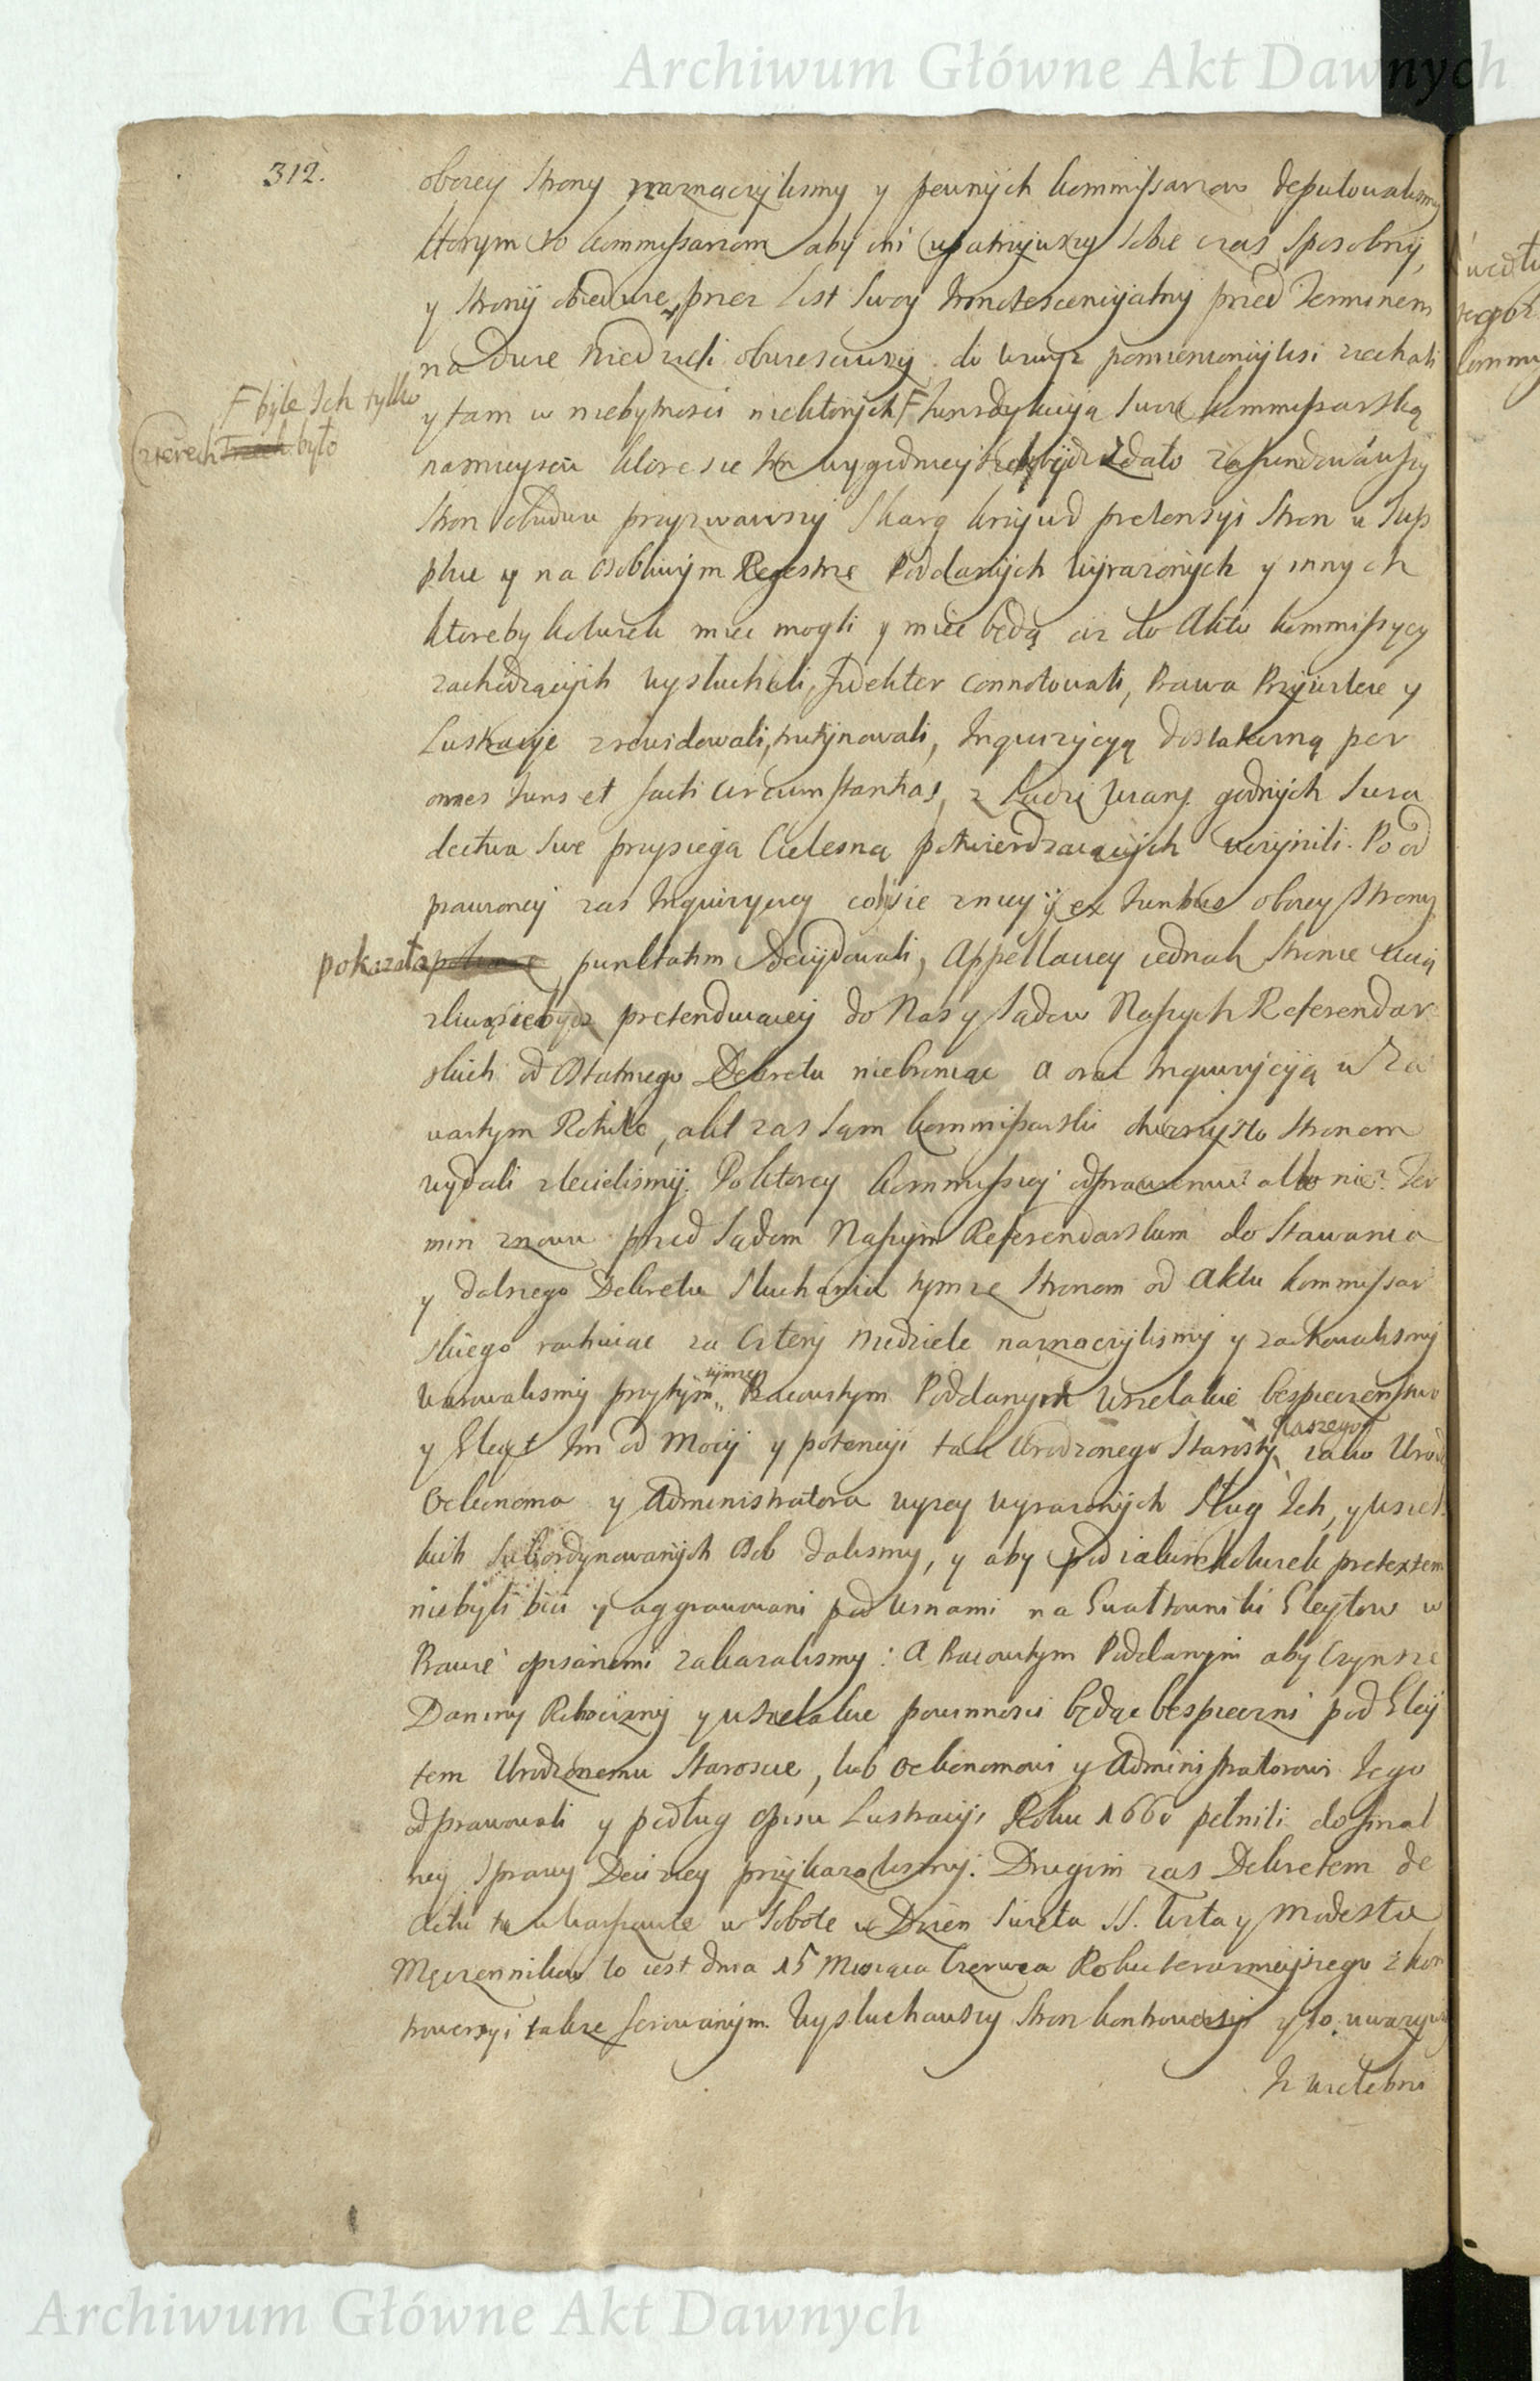 Archiwum Główne Akt Dawnych
312.
oboiey Strony naznaczylismy y pewnych kommissarzow deputowalismy
ktorym to kommissarzom aby oni upatrzywszy sobie czas sposobny,
y Strony obiedwie przez List Swoy Innotescencyalny przed Terminem
na dwie Niedzieli obwiesciwszy do wzwyz pomienioney wsi ziechali
F byle Ich tylko
czterech było
y tam w niebytnosci niektorych F Iurisdykcyią swoię kommissarską
na mieyscu ktore sie Im wygodnieysze bydz zdało zafundowawszy
Stron obudwu przyzwawszy Skarg krzywd pretensyi Stron w Sup
plice y na osobliwym Regestrze Poddanych wyrazonych y innych
ktoreby kolwiek miec mogli y miec będą az do Aktu kommissyey
zachodzących wysłuchali, connotowali, Prawa Przywileie y
Lustracye zrewidowali, trutynowali, Inquizycyą dostateczną per
omnes Iuris et facti circumstantias, z Ludzi wiary godnych swia
dectwa swe przysięgą Cielesną potwierdzaiących uczynili. Po od
prawioney zas Inquizycyey coby sie z niey y ex Iuribus oboiey Strony
pokazało punctatim decydowali, Appellacyey iednak Stronie
pretenduiącey do Nas y Sądow Naszych Referendar
skich od Ostatniego Dekretu niebroniąc a oraz Inquizycyią w Za
wartym Rotule, akt zas sam kommissarski otworzysto Stronom
wydali zlecielismy. Po ktorey kommissyey odprawieniu albo nie Ter
min znowu przed Sądem Naszym Referendarskim do Stawania
y dalszego Dekretu Słuchania tymze Stronom od Aktu kommissar
skiego rachuiąc za Cztery Niedziele naznaczylismy y zachowalismy
warowalismy przytym Pracowitym Poddanym wszelakie bespieczenstwo
y Gleyt Im od Mocy y potencyi tak Urodzonego Starosty Naszego iako Urodz
Oekonoma y Administratora wyzey wyrazonych Sług Ich, y wszel
kich subordynowanych osob dalismy, y aby pod iakimkolwiek pretextem
niebyli bici y aggrawowani pod winami na Gwałtowniki Gleytow w
Prawie opisanemi zakazalismy: A Pracowitym Poddanym aby Czynsze
Daniny Robocizny y wszelakie powinnosci będąc bespieczni pod Gley
tem Urodzonemu Staroscie, lub Oekonomowi y Administratorowi Iego
odprawowali y podług opisu Lustracyi Roku 1660 pełnili do final
ney Sprawy Decizyey przykazalismy. Drugim zas Dekretem de
actu tu w Warszawie w Sobotę w Dzien Swięta SS. Wita y Modesta
Męczennikow to iest dnia 15 Miesiąca Czerwca Roku teraznieyszego z kon
trowersyi także ferowanym. Wysłuchawszy Stron kontrowersyi y to uwazywszy
Iz wielebni
Archiwum Główne Akt Dawnych